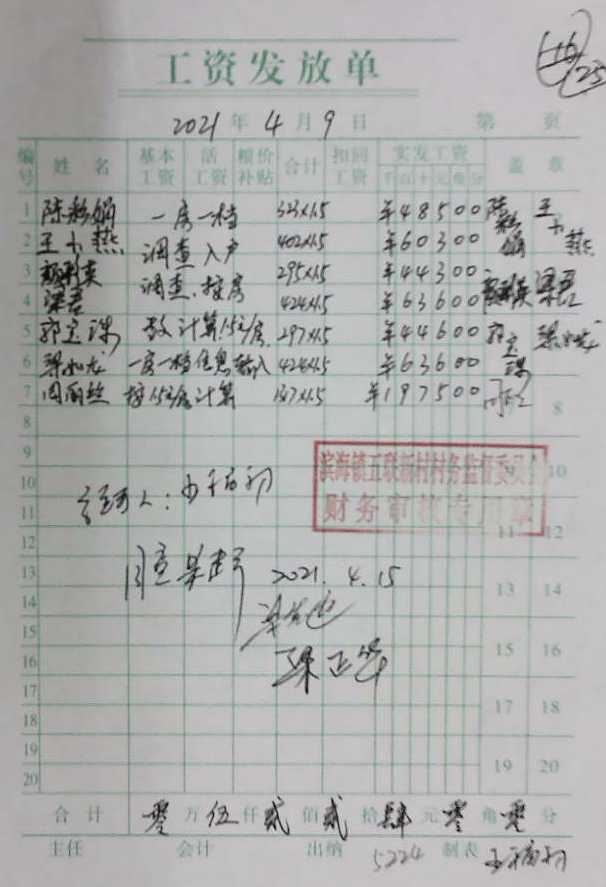 16/25
工资发放单
2021 年 4 月 9 日 第 页
编号 姓名 基本工资 活工资 粮价补贴 合计 扣回工资 实发工资 盖章
千 百 十 元 角 分
1 陈彩娟 一房一档 323×1.5 ¥48500 陈彩娟 王小燕
2 王小燕 调查入户 402×1.5 ¥60300
3 调查,按房 295×1.5 ¥44300 梁君
4 梁君 424×1.5 ¥63600
5 郭宝珠 数计算15元/房 297×1.5 ¥44600 郭宝珠 梁如龙
6 梁如龙 一房一档信息输入 424×1.5 ¥63600
7 周丽 按15元/房计算 ¥197500 8
8
9 滨海镇五联新村村务监督委员会 10
10 财务审核专用章
11 经手人: 11 12
12
13 同意 2021.4.15 13 14
14
15 15 16
16 梁正华
17 17 18
18
19 19 20
20
合计 零万伍仟贰佰贰拾肆元零角零分
主任 会计 出纳 5224 制表